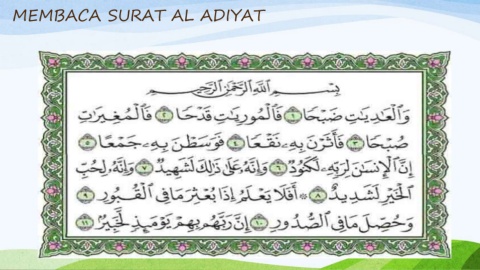 MEMBACA SURAT AL ADIYAT
بِسْمِ اللَّهِ الرَّحْمَٰنِ الرَّحِيمِ
وَالْعَادِيَاتِ ضَبْحًا ١ فَالْمُورِيَاتِ قَدْحًا ٢ فَالْمُغِيرَاتِ
صُبْحًا ٣ فَأَثَرْنَ بِهِ نَقْعًا ٤ فَوَسَطْنَ بِهِ جَمْعًا ٥
إِنَّ الْإِنْسَانَ لِرَبِّهِ لَكَنُودٌ ٦ وَإِنَّهُ عَلَىٰ ذَٰلِكَ لَشَهِيدٌ ٧ وَإِنَّهُ لِحُبِّ
الْخَيْرِ لَشَدِيدٌ ٨ ۞ أَفَلَا يَعْلَمُ إِذَا بُعْثِرَ مَا فِي الْقُبُورِ ٩
وَحُصِّلَ مَا فِي الصُّدُورِ ١٠ إِنَّ رَبَّهُمْ بِهِمْ يَوْمَئِذٍ لَخَبِيرٌ ١١